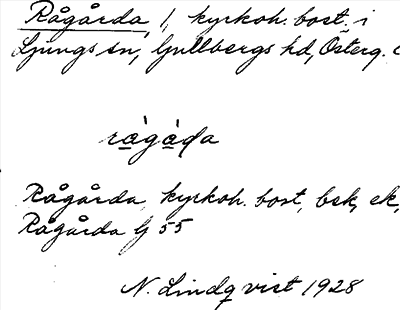 Rågårda, 1, kyrkoh. bost. i
Ljungs sn, Gullbergs hd, Österg.
ràgàda
Rågårda, kyrkoh. bost, bsk, ek,
Rågårda G 55
N. Lindqvist 1928